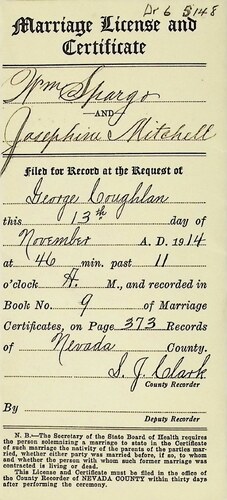 Dr 6 5148
Marriage License and
Certificate
Wm Spargo
—AND—
Josephine Mitchell
Filed for Record at the Request of
George Coughlan
this 13th day of
November A. D. 1914
at 46 min. past 11
o'clock A. M., and recorded in
Book No. 9 of Marriage
Certificates, on Page 373 Records
of Nevada County.
S. J. Clark
County Recorder
By
Deputy Recorder
N. B.—The Secretary of the State Board of Health requires
the person solemnizing a marriage to state in the Certificate
of such marriage the nativity of the parents of the parties married,
whether either party was married before, if so, to whom
and whether the person with whom such former marriage was
contracted is living or dead.
This License and Certificate must be filed in the office of
the County Recorder of NEVADA COUNTY within thirty days
after performing the ceremony.